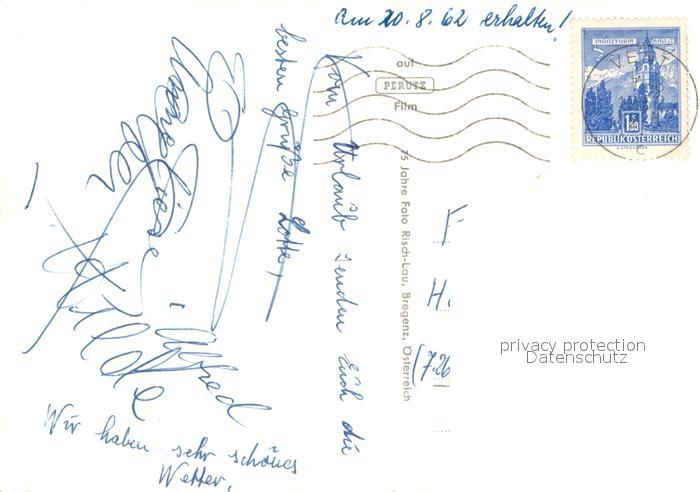 am 20. 8. 62 erhalten!
MÜNZTURM HALL i.T.
VENT
1.80
REPUBLIK ÖSTERREICH
auf
PERUTZ
Film
75 Jahre Foto Risch-Lau, Bregenz, Österreich
Vom Urlaub senden Euch die
besten Grüße Lotte
Anneliese
Alfred
Wir haben sehr schönes
Wetter.
F
H.
(726
privacy protection
Datenschutz